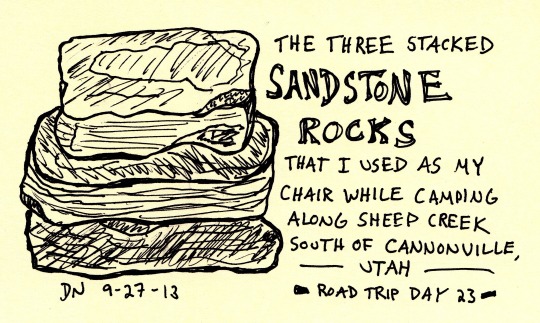 THE THREE STACKED
SANDSTONE
ROCKS
THAT I USED AS MY
CHAIR WHILE CAMPING
ALONG SHEEP CREEK
SOUTH OF CANNONVILLE,
UTAH
ROAD TRIP DAY 23
DN 9-27-13